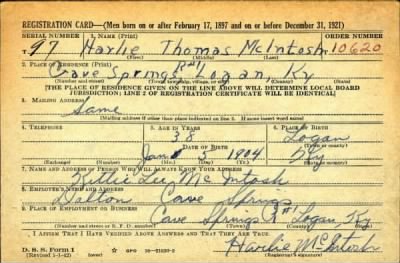 REGISTRATION CARD—(Men born on or after February 17, 1897 and on or before December 31, 1921)
SERIAL NUMBER 1. NAME (Print) ORDER NUMBER
T97 Harlie Thomas McIntosh 10620
(First) (Middle) (Last)
2. PLACE OF RESIDENCE (Print)
Cave Springs R#1 Logan, Ky
(Number and street) (Town, township, village, or city) (County) (State)
[THE PLACE OF RESIDENCE GIVEN ON THE LINE ABOVE WILL DETERMINE LOCAL BOARD
JURISDICTION; LINE 2 OF REGISTRATION CERTIFICATE WILL BE IDENTICAL]
3. MAILING ADDRESS
Same
(Mailing address if other than place indicated on line 2. If same insert word same)
4. TELEPHONE 5. AGE IN YEARS 6. PLACE OF BIRTH
38 Logan
DATE OF BIRTH (Town or county)
Jan 5 1904 Ky
(Exchange) (Number) (Mo.) (Day) (Yr.) (State or country)
7. NAME AND ADDRESS OF PERSON WHO WILL ALWAYS KNOW YOUR ADDRESS
Lee McIntosh
8. EMPLOYER'S NAME AND ADDRESS
Dalton Cave Springs
9. PLACE OF EMPLOYMENT OR BUSINESS
Cave Springs R#1 Logan Ky
(Number and street or R. F. D. number) (Town) (County) (State)
I AFFIRM THAT I HAVE VERIFIED ABOVE ANSWERS AND THAT THEY ARE TRUE.
D. S. S. Form 1
(Revised 1-1-42) GPO 16—21630-2 Harlie McIntosh